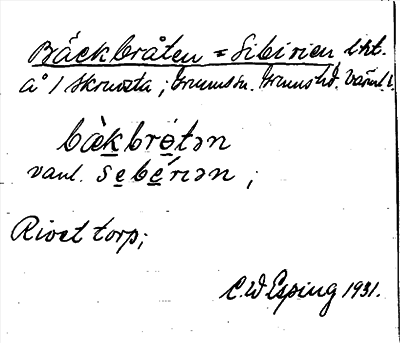 Bäckbråten = Sibirien lht.
å 1 Skruvsta; Grumssn. Grums hd. Värml. l.
bæ̀kbrø̜tən
vanl. sebérıən;
Rivet torp;
C.W Esping 1931.